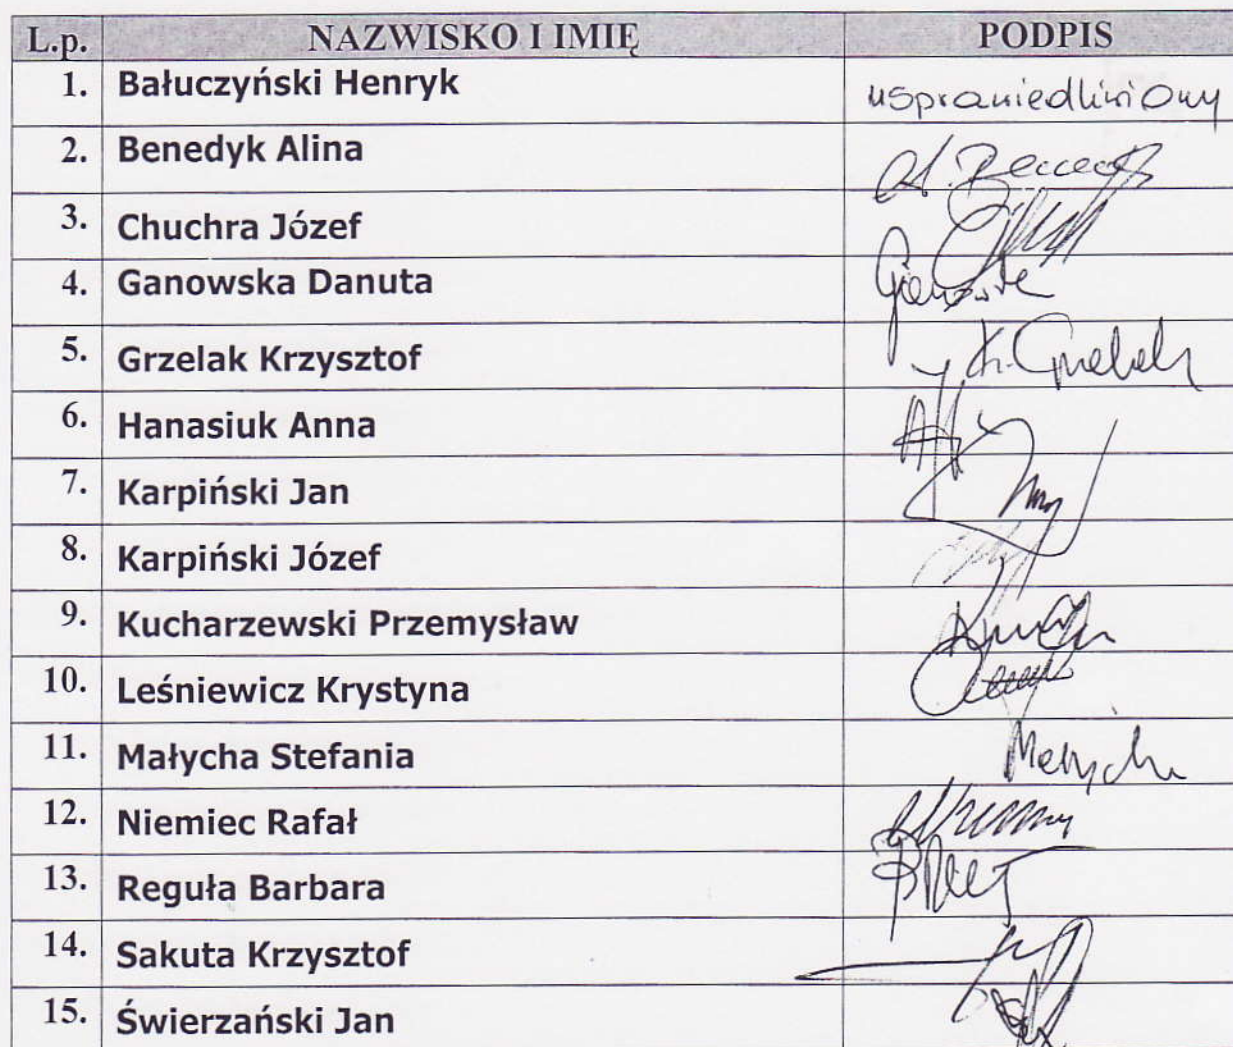 L.p. NAZWISKO I IMIĘ PODPIS
1. Bałuczyński Henryk usprawiedliwiony
2. Benedyk Alina
3. Chuchra Józef
4. Ganowska Danuta
5. Grzelak Krzysztof K. Grzelak
6. Hanasiuk Anna
7. Karpiński Jan
8. Karpiński Józef
9. Kucharzewski Przemysław
10. Leśniewicz Krystyna
11. Małycha Stefania Małycha
12. Niemiec Rafał
13. Reguła Barbara
14. Sakuta Krzysztof
15. Świerzański Jan